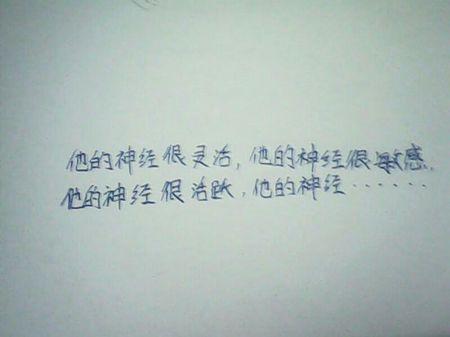 他的神经很灵活，他的神经很敏感，
他的神经很活跃，他的神经……